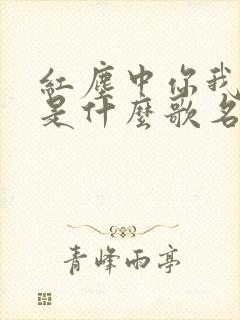 紅塵中你我
是什麼歌名
青峰雨亭